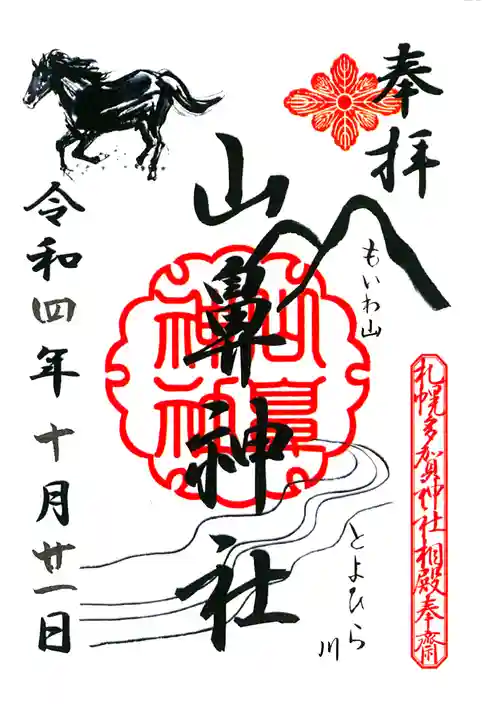 奉拝
もいわ山
札幌多賀神社相殿奉齋
とよひら川
山鼻神社
山鼻神社
令和四年十月廿一日